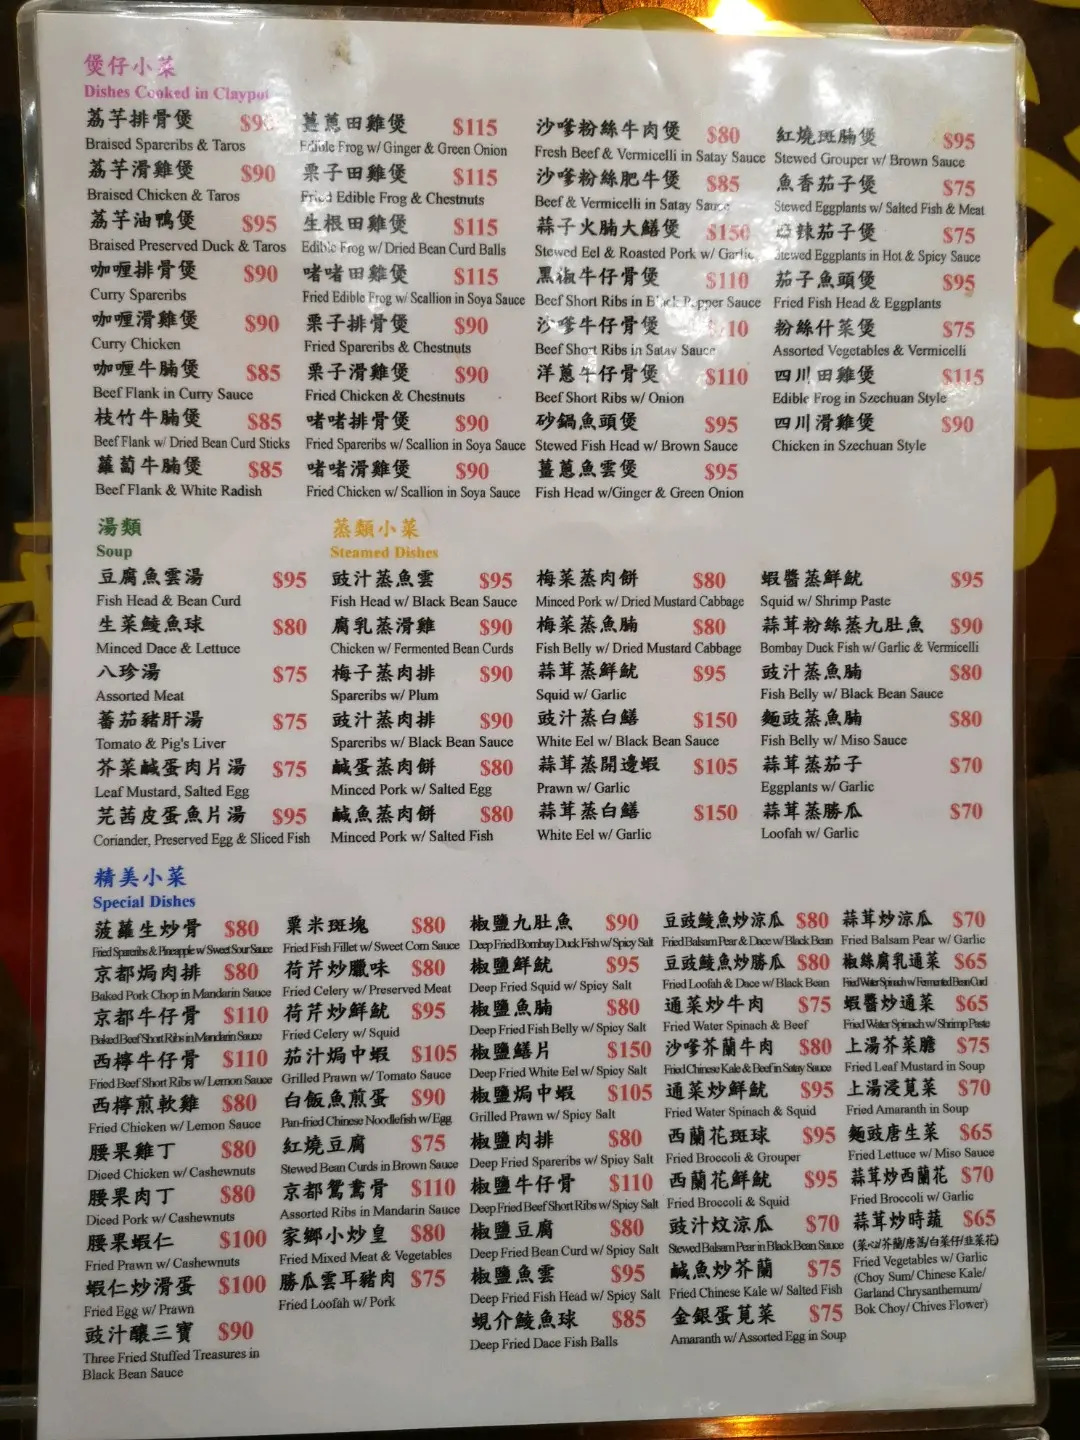 煲仔小菜
Dishes Cooked in Claypot
荔芋排骨煲
Braised Spareribs & Taros
荔芋滑雞煲 $90
Braised Chicken & Taros
荔芋油鴨煲 $95
Braised Preserved Duck & Taros
咖喱排骨煲 $90
Curry Spareribs
咖喱滑雞煲 $90
Curry Chicken
咖喱牛腩煲 $85
Beef Flank in Curry Sauce
枝竹牛腩煲 $85
Beef Flank w/ Dried Bean Curd Sticks
蘿蔔牛腩煲 $85
Beef Flank & White Radish
薑蔥田雞煲 $115
Edible Frog w/ Ginger & Green Onion
栗子田雞煲 $115
Fried Edible Frog & Chestnuts
生根田雞煲 $115
Edible Frog w/ Dried Bean Curd Balls
啫啫田雞煲 $115
Fried Edible Frog w/ Scallion in Soya Sauce
栗子排骨煲 $90
Fried Spareribs & Chestnuts
栗子滑雞煲 $90
Fried Chicken & Chestnuts
啫啫排骨煲 $90
Fried Spareribs w/ Scallion in Soya Sauce
啫啫滑雞煲 $90
Fried Chicken w/ Scallion in Soya Sauce
沙嗲粉絲牛肉煲 $80
Fresh Beef & Vermicelli in Satay Sauce
沙嗲粉絲肥牛煲 $85
Beef & Vermicelli in Satay Sauce
蒜子火腩大鱔煲 $150
Stewed Eel & Roasted Pork w/ Garlic
黑椒牛仔骨煲 $110
Beef Short Ribs in Black Pepper Sauce
沙嗲牛仔骨煲
Beef Short Ribs in Satay Sauce
洋蔥牛仔骨煲 $110
Beef Short Ribs w/ Onion
砂鍋魚頭煲 $95
Stewed Fish Head w/ Brown Sauce
薑蔥魚雲煲 $95
Fish Head w/Ginger & Green Onion
紅燒斑腩煲 $95
Stewed Grouper w/ Brown Sauce
魚香茄子煲 $75
Stewed Eggplants w/ Salted Fish & Meat
麻辣茄子煲 $75
Stewed Eggplants in Hot & Spicy Sauce
茄子魚頭煲 $95
Fried Fish Head & Eggplants
粉絲什菜煲 $75
Assorted Vegetables & Vermicelli
四川田雞煲 $115
Edible Frog in Szechuan Style
四川滑雞煲 $90
Chicken in Szechuan Style
湯類
Soup
豆腐魚雲湯 $95
Fish Head & Bean Curd
生菜鯪魚球 $80
Minced Dace & Lettuce
八珍湯 $75
Assorted Meat
蕃茄豬肝湯 $75
Tomato & Pig's Liver
芥菜鹹蛋肉片湯 $75
Leaf Mustard, Salted Egg
芫茜皮蛋魚片湯 $95
Coriander, Preserved Egg & Sliced Fish
蒸類小菜
Steamed Dishes
豉汁蒸魚雲 $95
Fish Head w/ Black Bean Sauce
腐乳蒸滑雞 $90
Chicken w/ Fermented Bean Curds
梅子蒸肉排 $90
Spareribs w/ Plum
豉汁蒸肉排 $90
Spareribs w/ Black Bean Sauce
鹹蛋蒸肉餅 $80
Minced Pork w/ Salted Egg
鹹魚蒸肉餅 $80
Minced Pork w/ Salted Fish
梅菜蒸肉餅 $80
Minced Pork w/ Dried Mustard Cabbage
梅菜蒸魚腩 $80
Fish Belly w/ Dried Mustard Cabbage
蒜茸蒸鮮魷 $95
Squid w/ Garlic
豉汁蒸白鱔 $150
White Eel w/ Black Bean Sauce
蒜茸蒸開邊蝦 $105
Prawn w/ Garlic
蒜茸蒸白鱔 $150
White Eel w/ Garlic
蝦醬蒸鮮魷 $95
Squid w/ Shrimp Paste
蒜茸粉絲蒸九肚魚 $90
Bombay Duck Fish w/ Garlic & Vermicelli
豉汁蒸魚腩 $80
Fish Belly w/ Black Bean Sauce
麵豉蒸魚腩 $80
Fish Belly w/ Miso Sauce
蒜茸蒸茄子 $70
Eggplants w/ Garlic
蒜茸蒸勝瓜 $70
Loofah w/ Garlic
精美小菜
Special Dishes
菠蘿生炒骨 $80
Fried Spareribs & Pineapple w/ Sweet Sour Sauce
京都焗肉排 $80
Baked Pork Chop in Mandarin Sauce
京都牛仔骨 $110
Baked Beef Short Ribs in Mandarin Sauce
西檸牛仔骨 $110
Fried Beef Short Ribs w/ Lemon Sauce
西檸煎軟雞 $80
Fried Chicken w/ Lemon Sauce
腰果雞丁 $80
Diced Chicken w/ Cashewnuts
腰果肉丁 $80
Diced Pork w/ Cashewnuts
腰果蝦仁 $100
Fried Prawn w/ Cashewnuts
蝦仁炒滑蛋 $100
Fried Egg w/ Prawn
豉汁釀三寶 $90
Three Fried Stuffed Treasures in
Black Bean Sauce
粟米斑塊 $80
Fried Fish Fillet w/ Sweet Corn Sauce
荷芹炒臘味 $80
Fried Celery w/ Preserved Meat
荷芹炒鮮魷 $95
Fried Celery w/ Squid
茄汁焗中蝦 $105
Grilled Prawn w/ Tomato Sauce
白飯魚煎蛋 $90
Pan-fried Chinese Noodlefish w/Egg
紅燒豆腐 $75
Stewed Bean Curds in Brown Sauce
京都鴛鴦骨 $110
Assorted Ribs in Mandarin Sauce
家鄉小炒皇 $80
Fried Mixed Meat & Vegetables
勝瓜雲耳豬肉 $75
Fried Loofah w/ Pork
椒鹽九肚魚 $90
Deep Fried Bombay Duck Fish w/ Spicy Salt
椒鹽鮮魷 $95
Deep Fried Squid w/ Spicy Salt
椒鹽魚腩 $80
Deep Fried Fish Belly w/ Spicy Salt
椒鹽鱔片 $150
Deep Fried White Eel w/ Spicy Salt
椒鹽焗中蝦 $105
Grilled Prawn w/ Spicy Salt
椒鹽肉排 $80
Deep Fried Spareribs w/ Spicy Salt
椒鹽牛仔骨 $110
Deep Fried Beef Short Ribs w/ Spicy Salt
椒鹽豆腐 $80
Deep Fried Bean Curd w/ Spicy Salt
椒鹽魚雲 $95
Deep Fried Fish Head w/ Spicy Salt
蜆介鯪魚球 $85
Deep Fried Dace Fish Balls
豆豉鯪魚炒涼瓜 $80
Fried Balsam Pear & Dace w/ Black Bean
豆豉鯪魚炒勝瓜 $80
Fried Loofah & Dace w/ Black Bean
通菜炒牛肉 $75
Fried Water Spinach & Beef
沙嗲芥蘭牛肉 $80
Fried Chinese Kale & Beef in Satay Sauce
通菜炒鮮魷 $95
Fried Water Spinach & Squid
西蘭花斑球 $95
Fried Broccoli & Grouper
西蘭花鮮魷 $95
Fried Broccoli & Squid
豉汁炆涼瓜 $70
Stewed Balsam Pear in Black Bean Sauce
鹹魚炒芥蘭 $75
Fried Chinese Kale w/ Salted Fish
金銀蛋莧菜 $75
Amaranth w/ Assorted Egg in Soup
蒜茸炒涼瓜 $70
Fried Balsam Pear w/ Garlic
椒絲腐乳通菜 $65
Fried Water Spinach w/ Fermented Bean Curd
蝦醬炒通菜 $65
Fried Water Spinach w/ Shrimp Paste
上湯芥菜膽 $75
Fried Leaf Mustard in Soup
上湯浸莧菜 $70
Fried Amaranth in Soup
麵豉唐生菜 $65
Fried Lettuce w/ Miso Sauce
蒜茸炒西蘭花 $70
Fried Broccoli w/ Garlic
蒜茸炒時蔬 $65
(菜心/芥蘭/唐蒿/白菜仔/韭菜花)
Fried Vegetables w/ Garlic
(Choy Sum/ Chinese Kale/
Garland Chrysanthemum/
Bok Choy/ Chives Flower)